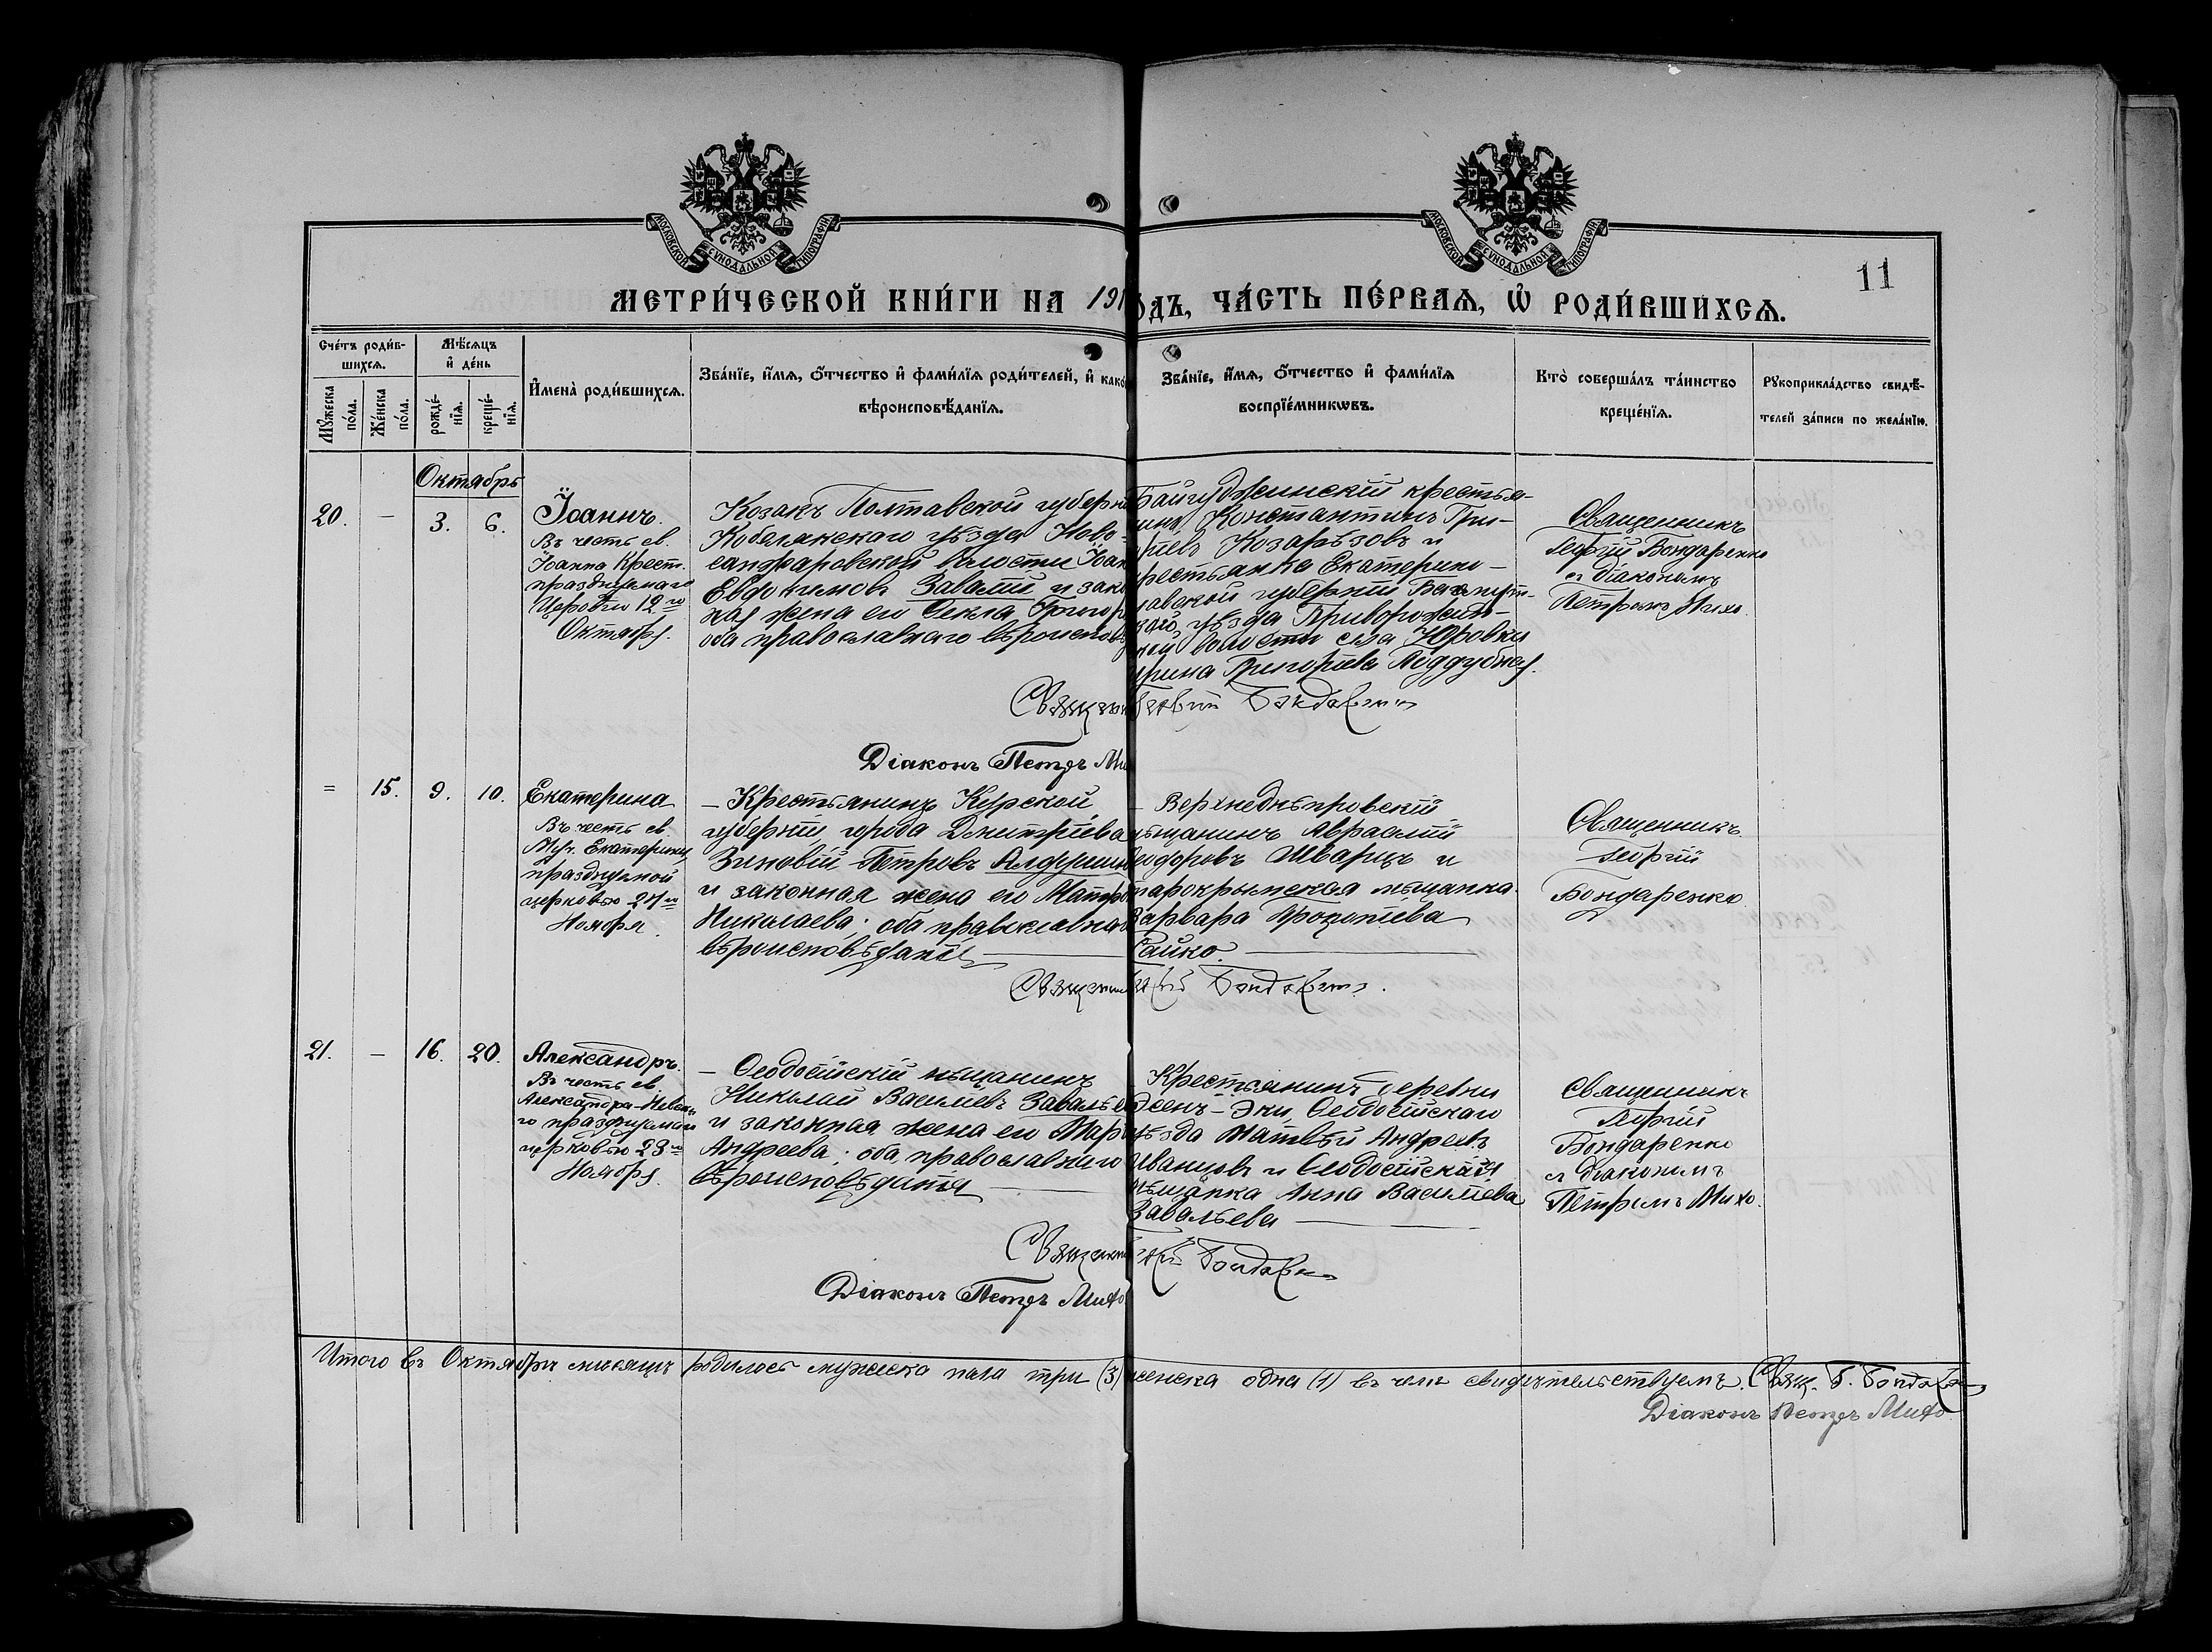 МОСКОВСКОЙ СѴНОДАЛЬНОЙ ТИПОГРАФІИ
МОСКОВСКОЙ СѴНОДАЛЬНОЙ ТИПОГРАФІИ
11
МЕТРИ́ЧЕСКОЙ КНИ́ГИ НА 191
ОДЪ, ЧА́СТЬ ПЕ́РВАѦ, Ѡ҆ РОДИ́ВШИХСѦ.
Сче́тъ роди́в-
шихсѧ.
Мѣ́сѧцъ
и҆ де́нь
Мꙋ́жеска
по́ла.
Же́нска
по́ла.
рожде́-
нїѧ.
креще́-
нїѧ.
И҆мена̀ роди́вшихсѧ.
Зва́нїе, и҆́мѧ, ѻ҆́тчество и҆ фами́лїѧ роди́телей, и҆ како
вѣроисповѣ́данїѧ.
Зва́нїе, и҆́мѧ, ѻ҆́тчество и҆ фами́лїѧ
воспрїе́мникѡвъ.
Кто̀ соверша́лъ та́инство
креще́нїѧ.
Рꙋкоприкла́дство свидѣ́-
телей за́писи по жела́нїю.
Октябрь
20.
-
3.
6.
Іоаннъ.
Въ честь св.
Іоанна Крест.
празднуемаго
Церковью 12го
Октября.
Козакъ Полтавской губерн
Кобелякскаго уѣзда Ново-
санжаровской волости Іоан
Евфимовъ Завалій и зако
ная жена его Ѳекла Григор
оба православнаго вѣроисповѣ
Байгуджинскій крестья-
нинъ Константинъ Гри-
рьевъ Козарѣзовъ и
рестьянка Екатерино-
лавской губерніи Бахмут-
каго уѣзда Приворожин-
кой волости села Юровки
Ирина Григорьева Поддубная.
Священникъ
Георгій Бондаренко
съ діакономъ
Петромъ Михо.
Священ
Діаконъ Петръ Ми
=
15.
9.
10.
Екатерина
Въ честь св.
Муч. Екатерины
празднуемой
церковью 24го
Ноября.
- Крестьянинъ Курской
губерніи города Дмитріева
Зиновій Петровъ
и законная жена его Матр
Николаева; оба православна
вѣроисповѣданія
- Верхнеднѣпровскій
мѣщанинъ Авраамій
еодоровъ Шварцъ и
тарокрымская мѣщанка
Варвара Прокопіева
Гайко.
Священникъ
Георгій
Бондаренко
Священ
21.
-
16.
20.
Александръ.
Въ честь св.
Александра-Невска
го празднуемаго
церковью 23го
Ноября.
- Ѳеодосійскій мѣщанинъ
Николай Василіевъ Завалье
и законная жена его Мар
Андреева; оба православнаго
вѣроисповѣданія
Крестьянинъ деревни
Джен-Эки, Ѳеодосійскаго
уѣзда Матвѣй Андреевъ
Иванцовъ и Ѳеодосійская
мѣщанка Анна Василіева
Завальева
Священникъ
Георгій
Бондаренко
съ діакономъ
Петромъ Михо.
Священ
Діаконъ Петръ Михо
Итого въ Октябрѣ мѣсяцѣ родилось мужеска пола три (3) женска одна (1) въ чемъ свидѣтельствуемъ. Свящ. Г. Бондаренко
Діаконъ Петръ Михо